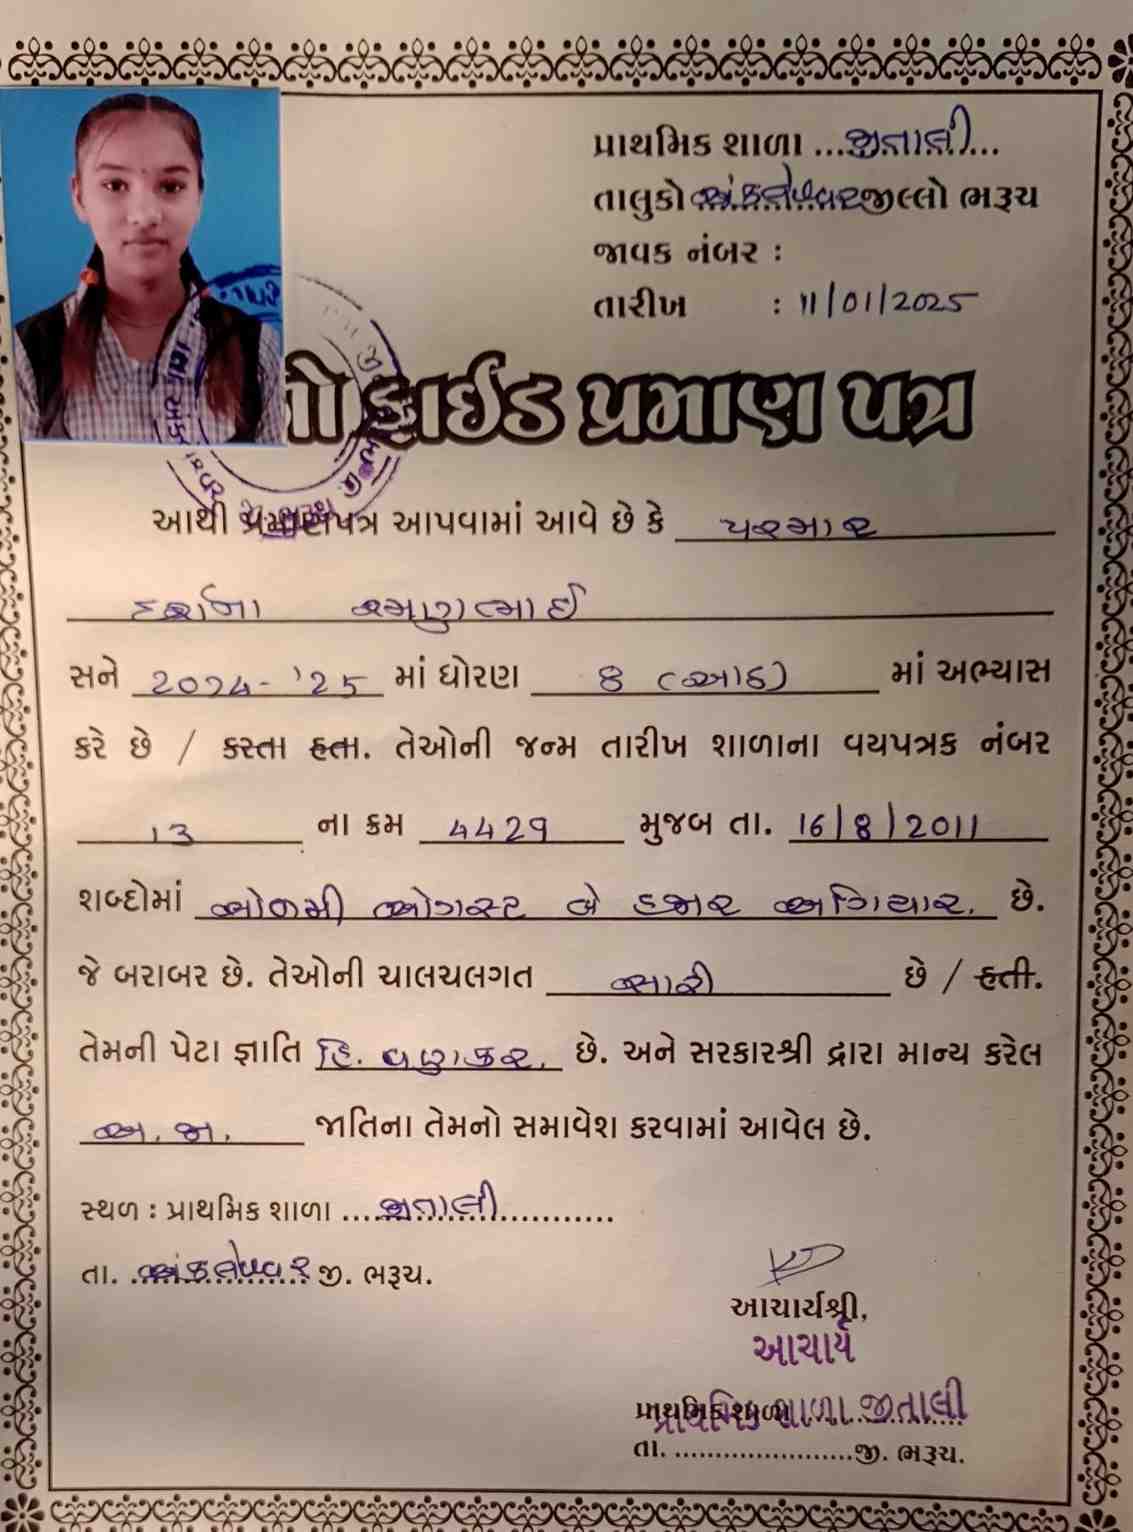 પ્રાથમિક શાળા ...જીતાલી...
તાલુકો અંકલેશ્વર જીલ્લો ભરૂચ
જાવક નંબર :
તારીખ : 11/01/2025
નોફાઈડ પ્રમાણ પત્ર
આથી પ્રમાણપત્ર આપવામાં આવે છે કે પરમાર
દર્શના રમણભાઈ
સને 2024-'25 માં ધોરણ 8 (આઠ) માં અભ્યાસ
કરે છે / કરતા હતા. તેઓની જન્મ તારીખ શાળાના વયપત્રક નંબર
13 ના ક્રમ 4429 મુજબ તા. 16/8/2011
શબ્દોમાં સોળમી ઓગસ્ટ બે હજાર અગિયાર. છે.
જે બરાબર છે. તેઓની ચાલચલગત સારી છે / હતી.
તેમની પેટા જ્ઞાતિ હિ. વણકર. છે. અને સરકારશ્રી દ્વારા માન્ય કરેલ
અ.જા. જાતિના તેમનો સમાવેશ કરવામાં આવેલ છે.
સ્થળ : પ્રાથમિક શાળા ...જીતાલી...
તા. અંકલેશ્વર જી. ભરૂચ.
આચાર્યશ્રી,
આચાર્ય
પ્રાથમિક શાળા
પ્રાથમિક શાળા જીતાલી
તા. ......................જી. ભરૂચ.